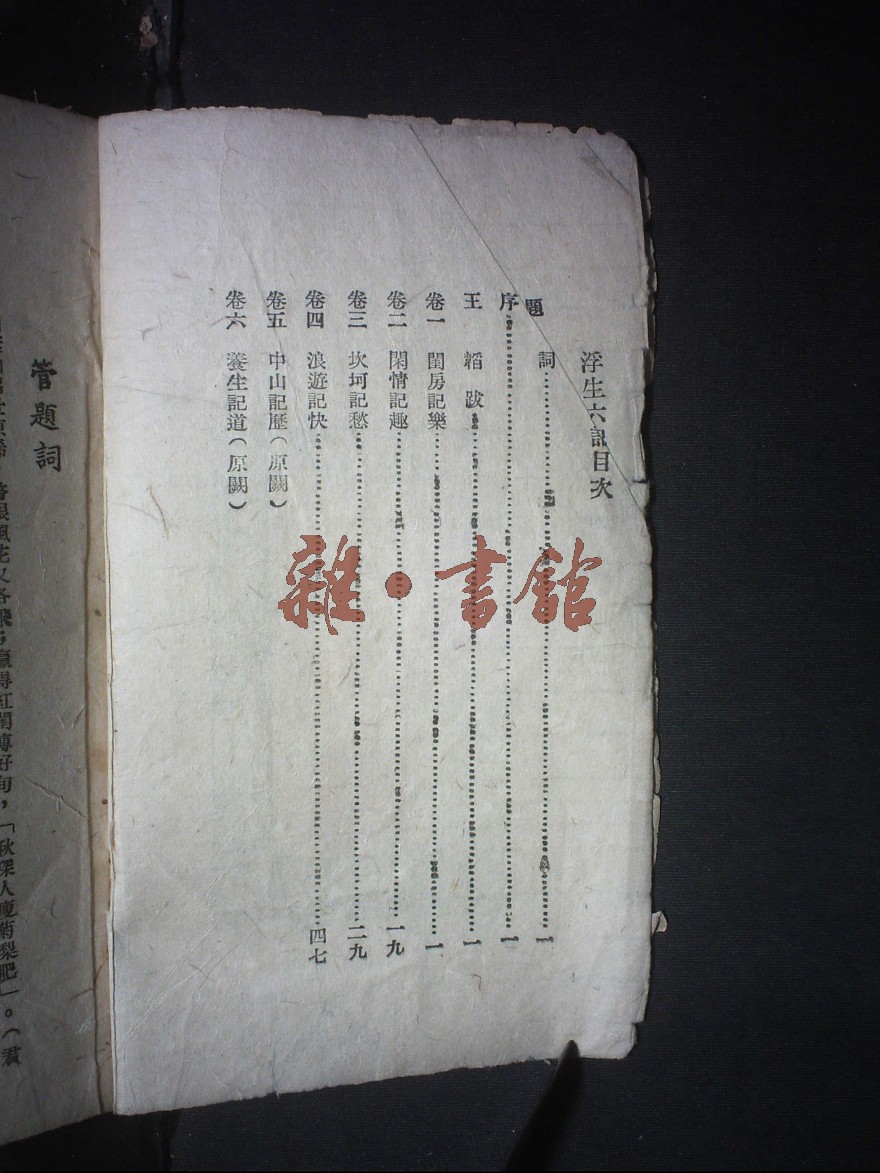 浮生六記目次
題詞……一
序……一
王韜跋……一
卷一 閨房記樂……一
卷二 閑情記趣……一九
卷三 坎坷記愁……二九
卷四 浪遊記快……四七
卷五 中山記歷(原闕)
卷六 養生記道(原闕)
雜·書館
管題詞
眼風花又各飛,贏得紅閨傳好句,「秋深人瘦菊梨肥」。(君